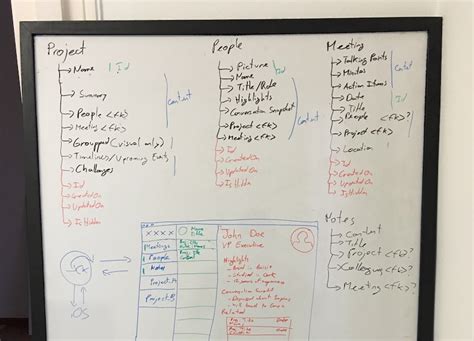 Project
Name
Id
Summary
People <fk>
Meeting <fk>
Groupped (visual only)
Timelines/Upcoming Events
Challenges
Id
CreatedOn
UpdatedOn
Is Hidden
Content
People
Picture
Name
Title/Role
Highlights
Conversation Snapshot
Project <fk>
Meeting <fk>
Id
CreatedOn
UpdatedOn
Is Hidden
Id
Content
Meeting
Talking Points
Minutes
Action Items
Date
Title
People <fk>?
Project <fk>?
Location
Id
CreatedOn
UpdatedOn
IsHidden
Content
Id
Notes
Content
Title
Project <fk>?
Colleague <fk>?
Meeting <fk>?
iOS
XXXX
Meetings
People
Notes
Project
Project
Name
John Doe
VP Executive
Highlights
Conversation Snapshot
Related